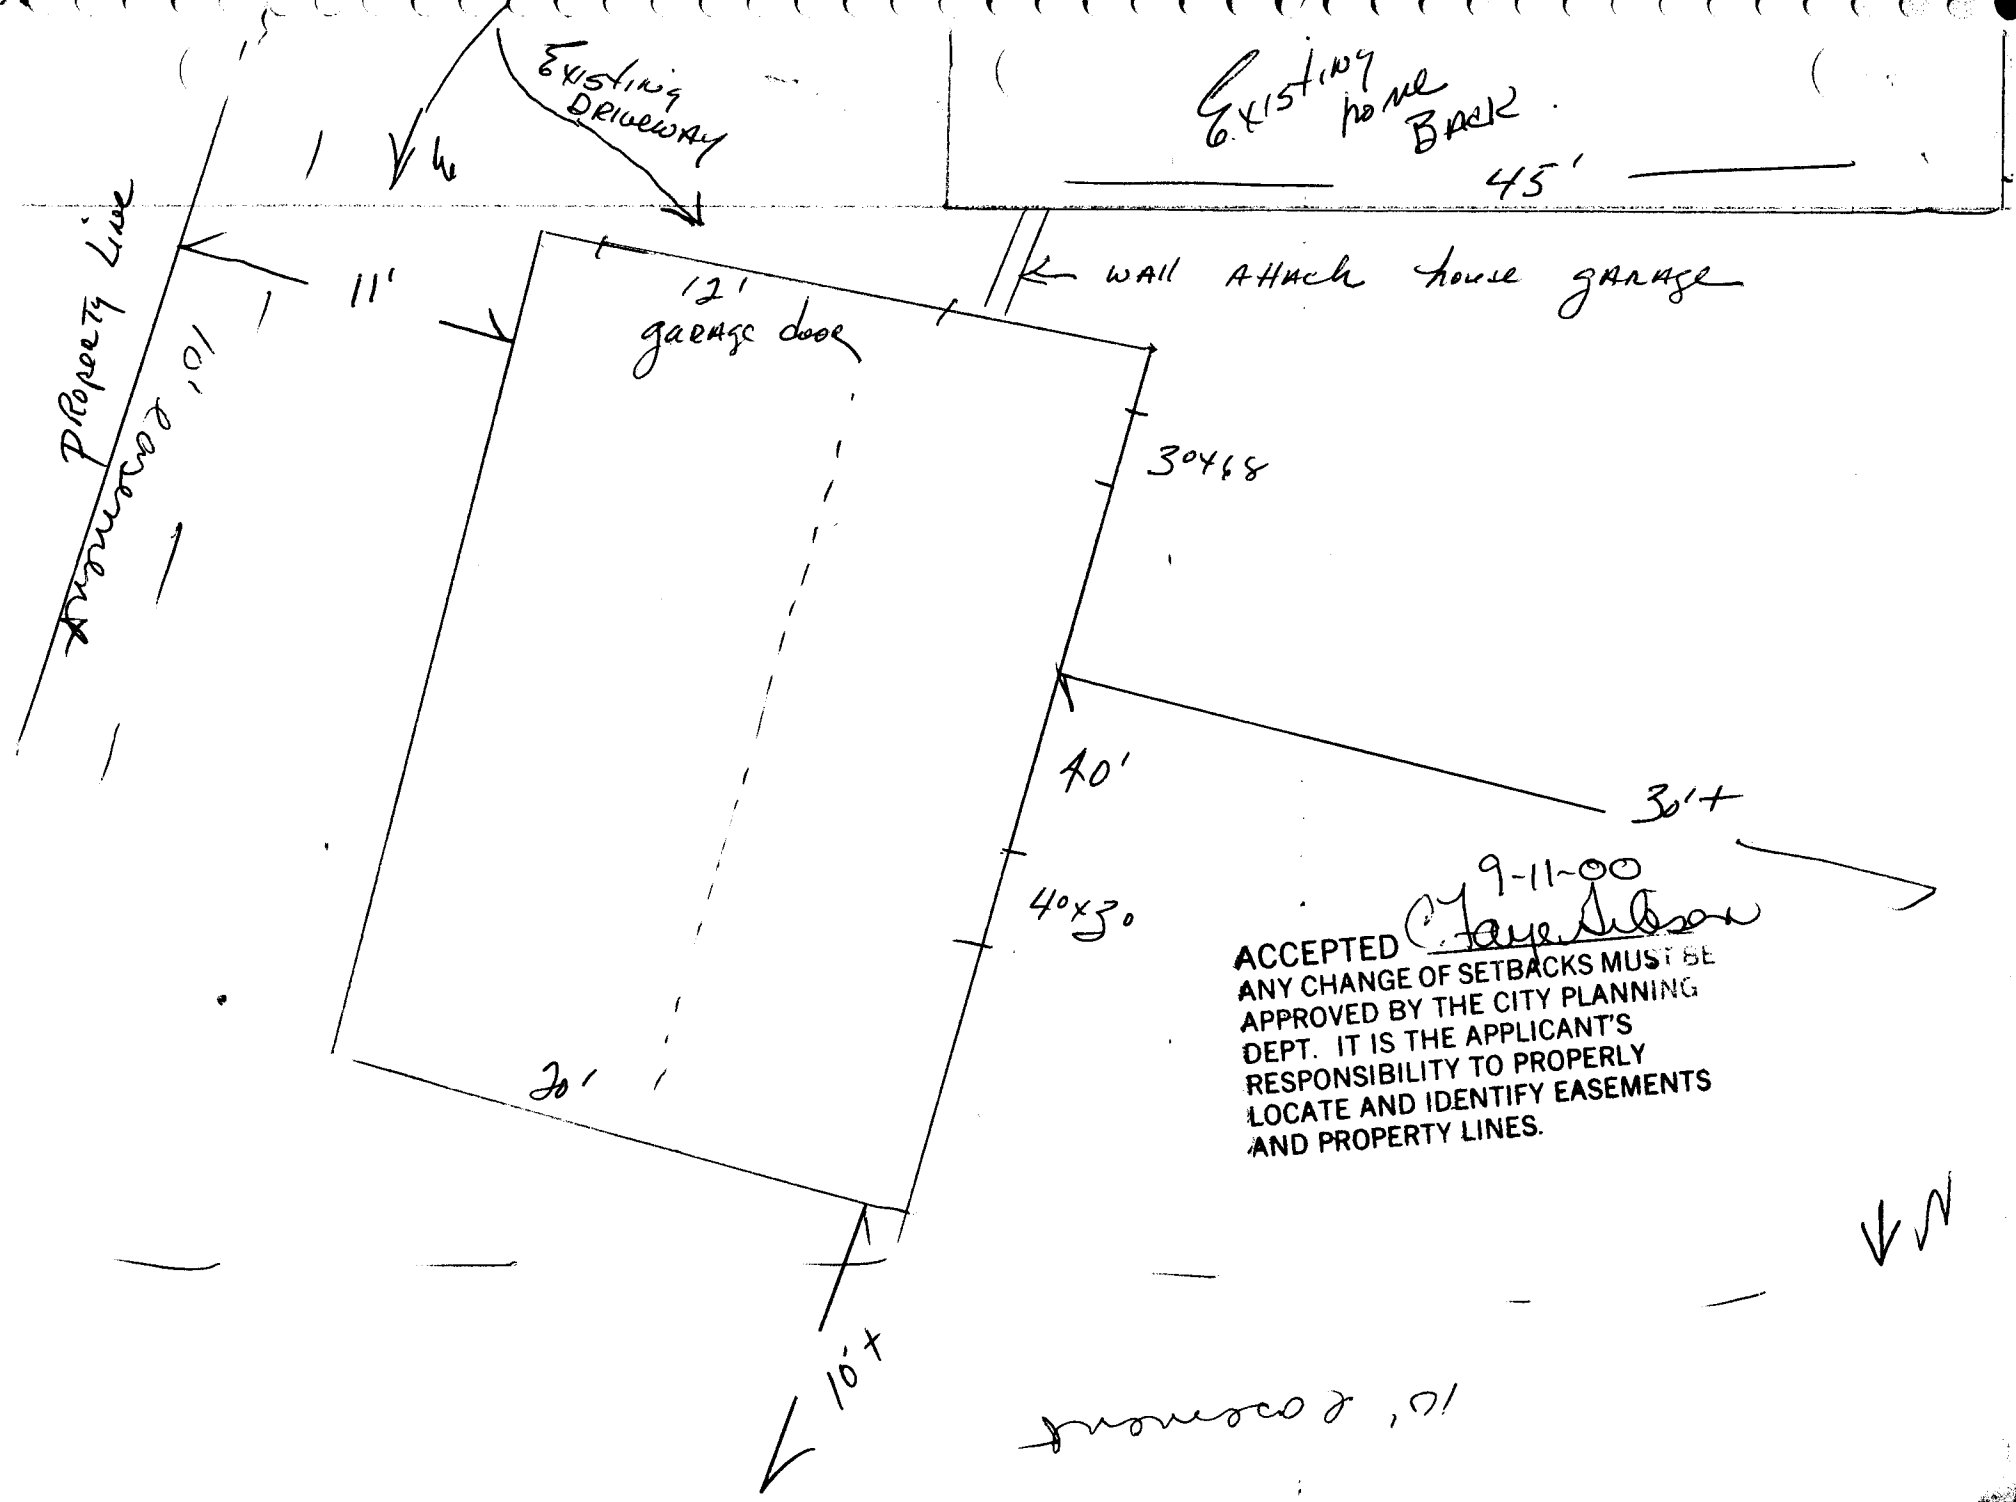 Existing
DRIVEWAY
Existing
home
BACK
45'
Property Line
11'
12'
garage door
WALL Attach house garage
10' easement
3⁰x6⁸
40'
30'+
4⁰x3⁰
9-11-00
ACCEPTED C. Faye Gibson
ANY CHANGE OF SETBACKS MUST BE
APPROVED BY THE CITY PLANNING
DEPT. IT IS THE APPLICANT'S
RESPONSIBILITY TO PROPERLY
LOCATE AND IDENTIFY EASEMENTS
AND PROPERTY LINES.
20'
N
10'+
10' easement